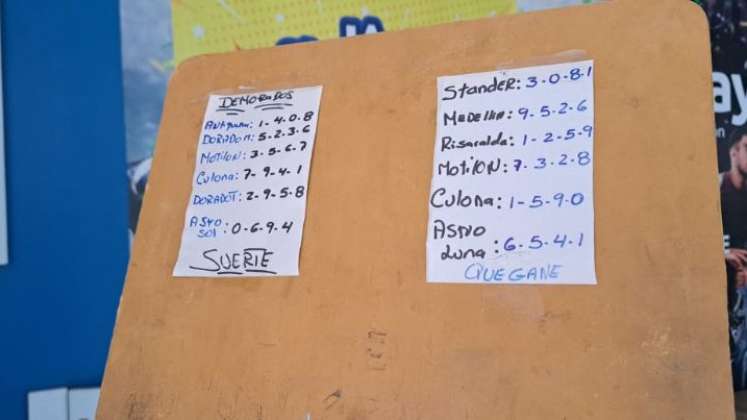 DEMORADOS
ANTIOQUEÑA: 1-4.0.8
DORADO M: 5.2.3.6
MOTILON: 3.5.6.7
Culona: 7-9.4.1
DORADO T: 2-9.5.8
ASTRO
SOL: 0.6.9.4
SUERTE
StandER: 3.0.8.1
MEDELLIN: 9.5.2.6
Risaralda: 1-2.5.9
MOTILON: 7.3.2.8
Culona: 1-5.9.0
ASTRO
Luna: 6.5.4.1
QUE GANE
ay